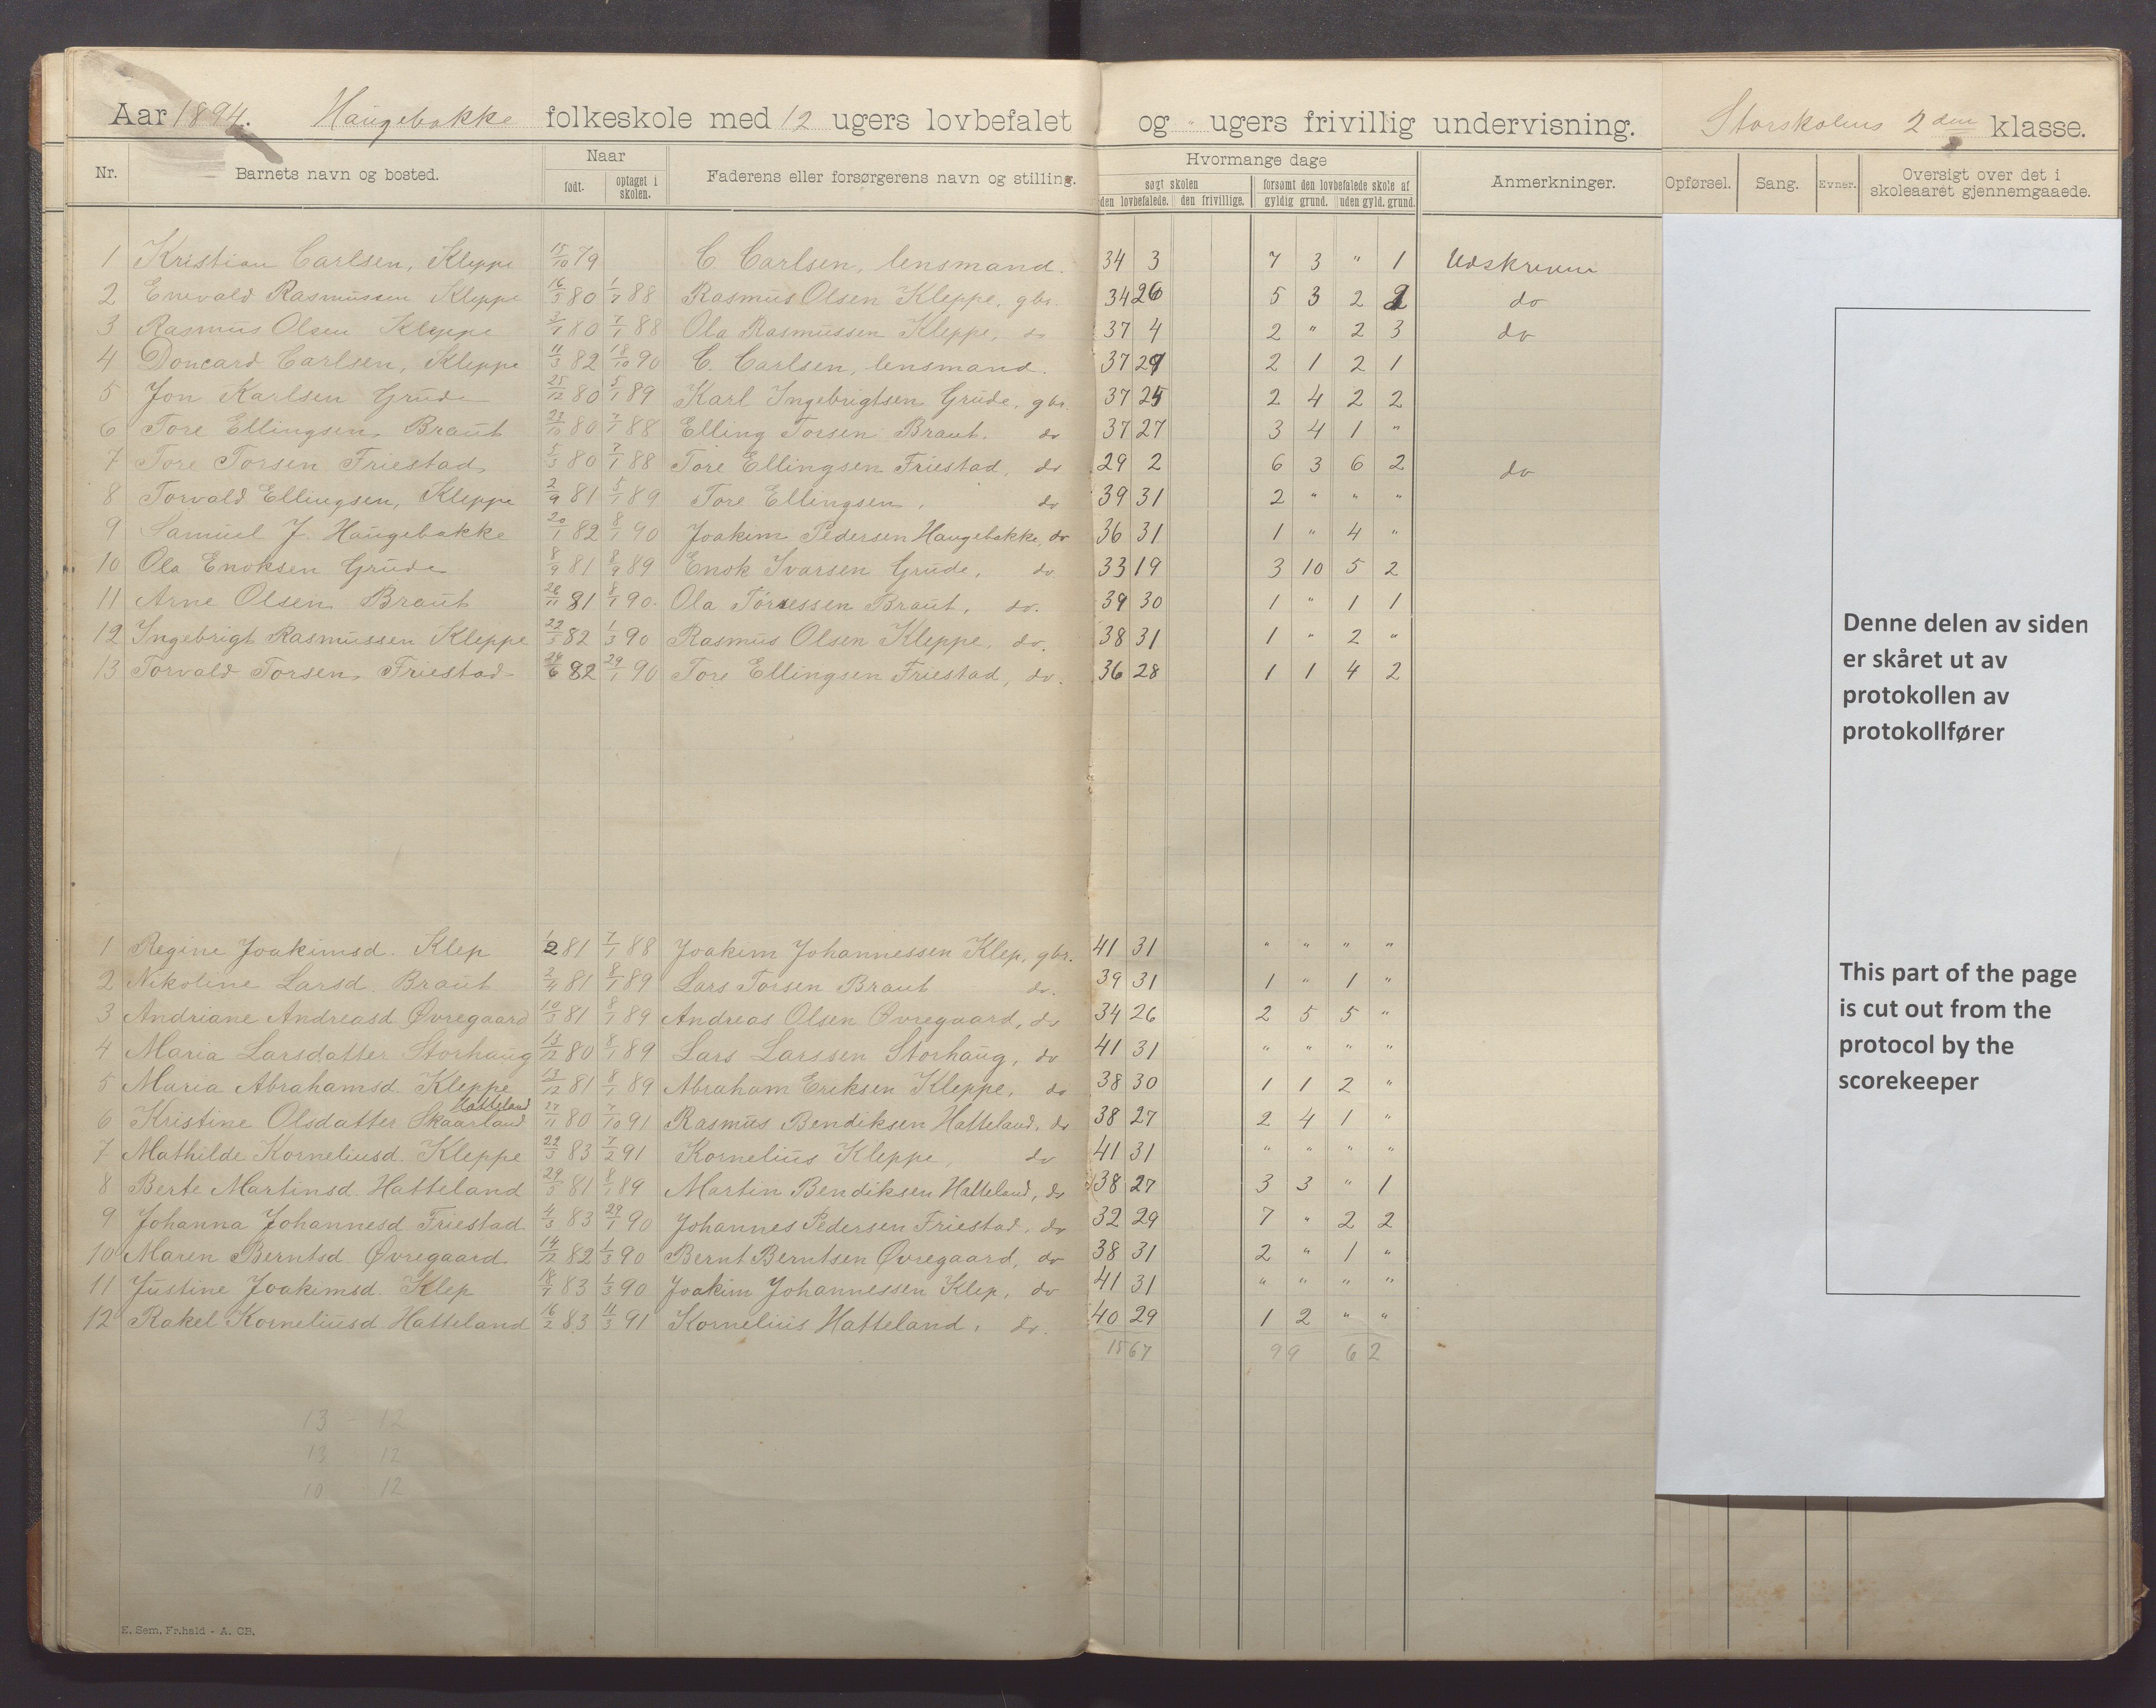 Aar 1894. Haugebakke folkeskole med 12 ugers lovbefalet og " ugers frivillig undervisning. Storskolens 2den klasse.
Nr. Barnets navn og bosted. Naar Faderens eller forsørgerens navn og stilling. Hvormange dage Anmerkninger. Opførsel. Sang. Evner. Oversigt over det i skoleaaret gjennemgaaede.
født. optaget i skolen. søgt skolen forsømt den lovbefalede skole af
den lovbefalede. den frivillige. gyldig grund. uden gyld. grund.
1 Kristian Carlsen, Kleppe 15/10 79 C. Carlsen, lensmand. 34 3 7 3 " 1 Udskreven
2 Enevald Rasmussen Kleppe 16/5 80 1/7 88 Rasmus Olsen Kleppe, gbr. 34 26 5 3 2 2 do
3 Rasmus Olsen Kleppe 3/1 80 7/1 88 Ola Rasmussen Kleppe, do 37 4 2 " 2 3 do
4 Doncard Carlsen, Kleppe 11/3 82 18/10 90 C. Carlsen, lensmand. 37 29 2 1 2 1
5 Jon Karlsen Grude 25/12 80 5/1 89 Karl Ingebrigtsen Grude, gbr. 37 25 2 4 2 2
6 Tore Ellingsen Braut 23/10 80 7/1 88 Elling Torsen Braut. do 37 27 3 4 1 "
7 Tore Torsen Friestad 5/3 80 7/1 88 Tore Ellingsen Friestad, do 29 2 6 3 6 2 do
8 Torvald Ellingsen, Kleppe 2/9 81 5/1 89 Tore Ellingsen, do 39 31 2 " " "
9 Samuel J. Haugebakke 20/1 82 8/1 90 Joakim Pedersen Haugebakke, do 36 31 1 " 4 "
10 Ola Enoksen Grude 8/9 81 8/9 89 Enok Ivarsen Grude, do 33 19 3 10 5 2
11 Arne Olsen Braut 28/11 81 8/1 90. Ola Tørressen Braut, do. 39 30 1 " 1 1
12 Ingebrigt Rasmussen Kleppe 22/5 82 1/3 90 Rasmus Olsen Kleppe, do. 38 31 1 " 2 "
13 Torvald Torsen Friestad 24/6 82 29/1 90 Tore Ellingsen Friestad, do. 36 28 1 1 4 2
Denne delen av siden
er skåret ut av
protokollen av
protokollfører
1 Regine Joakimsd. Klep 1/2 81 7/1 88 Joakim Johannessen Klep, gbr. 41 31 " " " "
2 Nikoline Larsd. Braut 2/4 81 8/1 89 Lars Torsen Braut do. 39 31 1 " 1 "
3 Andriane Andreasd Øvregaard 10/3 81 8/1 89 Andreas Olsen Øvregaard, do 34 26 2 5 5 "
4 Maria Larsdatter Storhaug 13/12 80 8/1 89 Lars Larssen Storhaug, do 41 31 " " " "
5 Maria Abrahamsd. Kleppe 13/12 81 8/1 89 Abraham Eriksen Kleppe, do 38 30 1 1 2 "
Hatteland
6 Kristine Olsdatter Skaarland 27/11 80 7/10 91 Rasmus Bendiksen Hatteland, do 38 27 2 4 1 "
7 Mathilde Korneliusd. Kleppe 22/3 83 7/2 91 Kornelius Kleppe, do 41 31 " " " "
8 Berte Martinsd. Hatteland 29/5 81 8/1 89 Martin Bendiksen Hatteland, do 38 27 3 3 " 1
9 Johanna Johannesd. Friestad 4/3 83 29/1 90 Johannes Pedersen Friestad, do 32 29 7 " 2 2
10 Maren Berntsd Øvregaard 14/12 82 1/3 90 Bernt Berntsen Øvregaard, do 38 31 2 " 1 "
11 Justine Joakimsd. Klep 18/7 83 1/3 90 Joakim Johannessen Klep, do 41 31 " " " "
12 Rakel Korneliusd Hatteland 16/2 83 11/3 91 Kornelius Hatteland, do. 40 29 1 2 " "
1567 99 62
This part of the page
is cut out from the
protocol by the
scorekeeper
13 - 12
13 12
10 - 12
E. Sem, Fr.hald - A. CB.